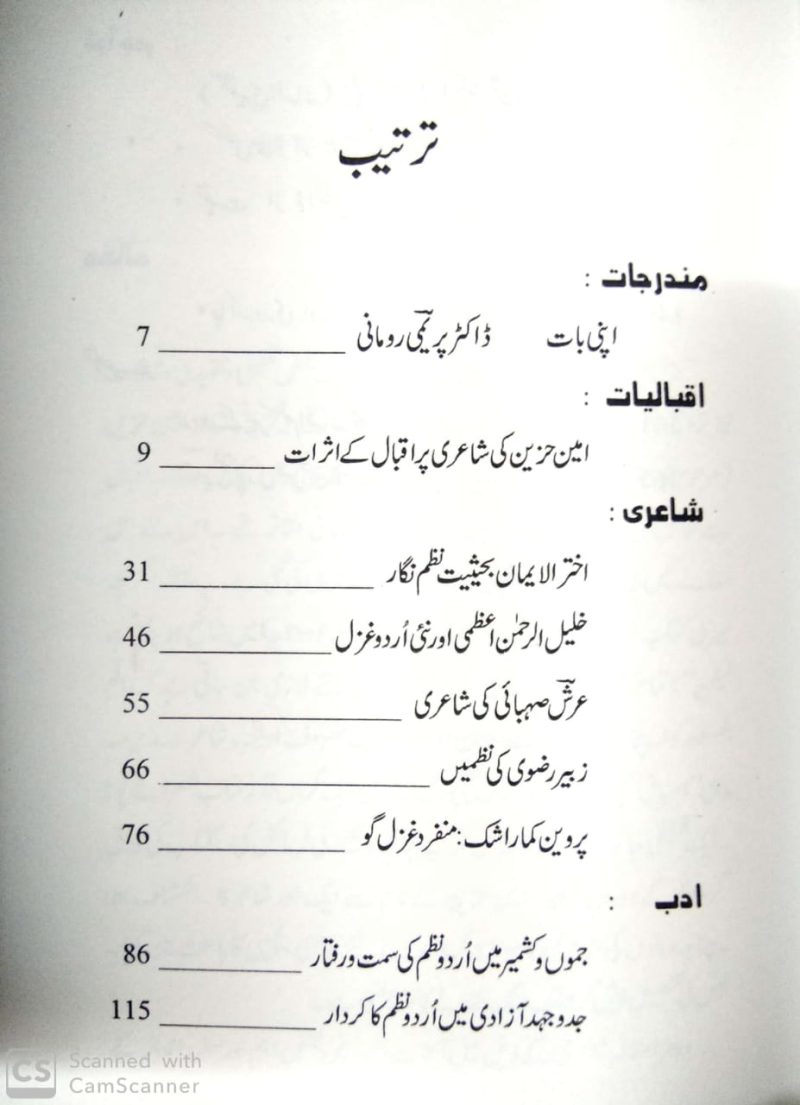 ترتیب
مندرجات :
اپنی بات ڈاکٹر پریمیؔ رومانی ____________ 7
اقبالیات :
امین حزین کی شاعری پر اقبال کے اثرات ________ 9
شاعری :
اختر الایمان بحیثیت نظم نگار ______________ 31
خلیل الرحمٰن اعظمی اور نئی اُردو غزل ____________ 46
عرشؔ صہبائی کی شاعری ________________ 55
زبیر رضوی کی نظمیں __________________ 66
پروین کمار اشک : منفرد غزل گو ____________ 76
ادب :
جموں و کشمیر میں اُردو نظم کی سمت و رفتار _________ 86
جدوجہد آزادی میں اُردو نظم کا کردار __________ 115
CS Scanned with
CamScanner